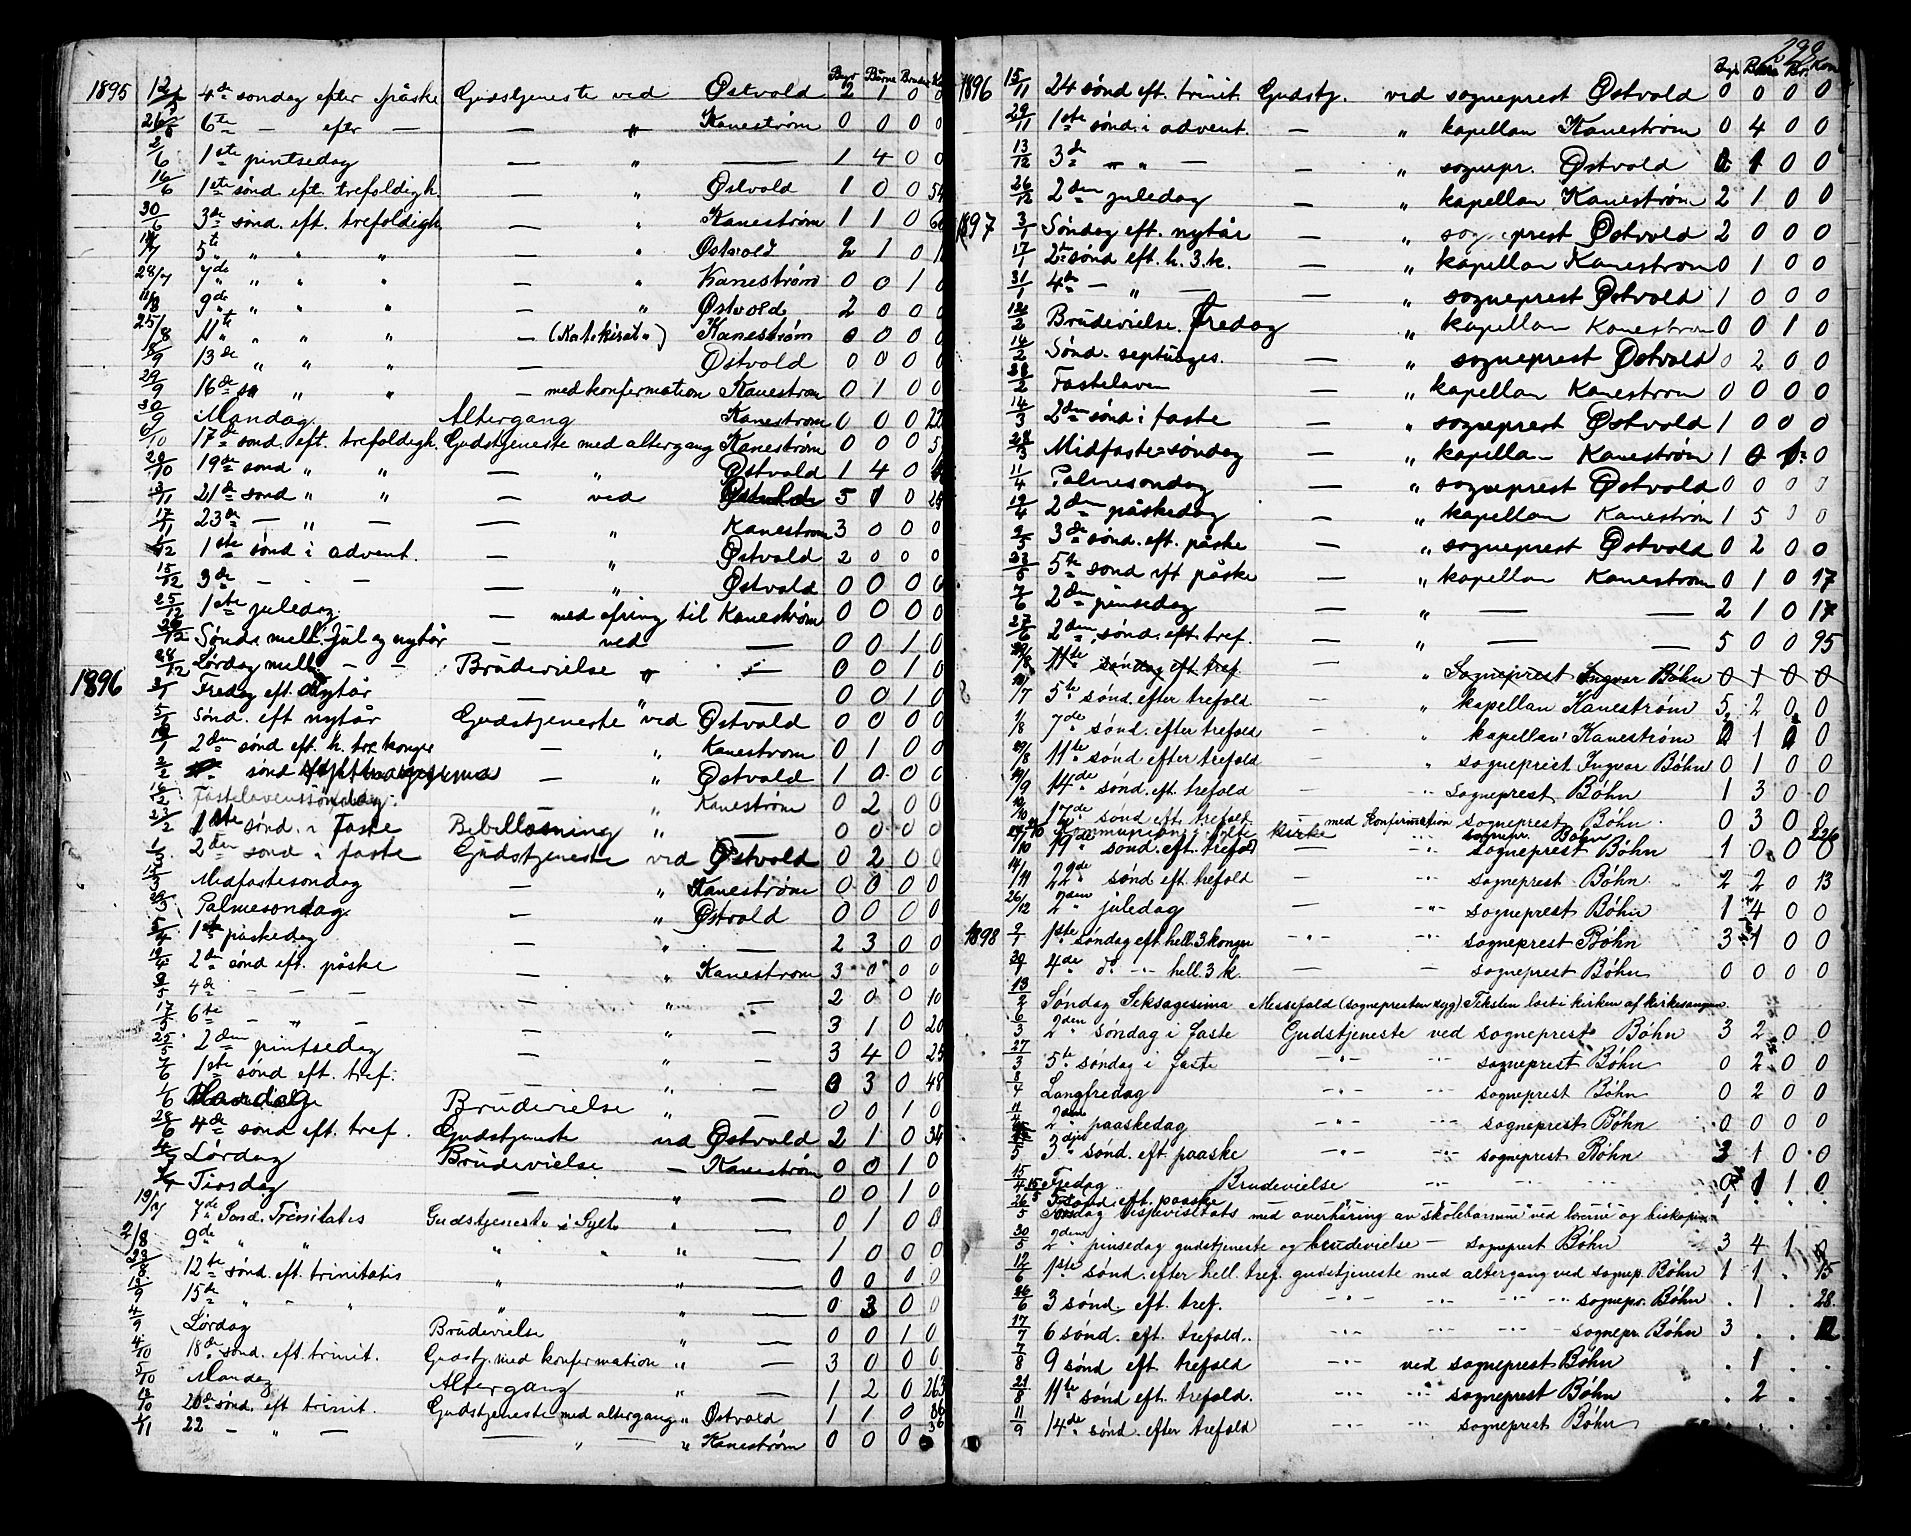 Begr Barne Brude K
1895 12/5 4de søndag efter påske Gudstjeneste ved Østvold 2 1 0 0
26/5 6te — efter — — " Kanestrøm 0 0 0 0
2/6 1ste pintsedag — " — 1 4 0 0
16/6 1ste sønd. eft. trefoldigh. — " Østvold 1 0 0 54
30/6 3de sønd. eft. trefoldigh. — " Kanestrøm 1 1 0
14/7 5te " " " — " Østvold 2 1 0
28/7 7de " " " — " Kanestrøm 0 0 1 0
11/8 9de " " " — " Østvold 2 0 0 0
25/8 11te " " " — (Katekisat.) Kanestrøm 0 0 0 0
8/9 13de " " " — Østvold 0 0 0 0
29/9 16de " " — med konfirmation Kanestrøm 0 1 0 0
30/9 Mandag Altergang Kanestrøm 0 0 0
6/10 17de sønd eft. trefoldigh. Gudstjeneste med altergang Kanestrøm 0 0 0
20/10 19de sønd " " — " Østvold 1 4 0
3/11 21de sønd " " — ved Østvold 5 1 0
17/11 23de — " — — " Kanestrøm 3 0 0 0
1/12 1ste sønd i advent. — " Østvold 2 0 0 0
15/12 3de — - — " Østvold 0 0 0 0
25/12 1ste juledag — med ofring til Kanestrøm 0 0 0 0
29/12 Sønd. mell. Jul og nytår — ved — 0 0 1 0
28/12 Lørdag mell. — — Brudevielse " — 0 0 1 0
1896 3/1 Fredag eft. Nytår " — 0 0 1 0
5/1 Sønd. eft nytår Gudstjeneste ved Østvold 0 0 0 0
19/1 2den sønd eft. h. tre konger — " Kanestrøm 0 1 0 0
2/2 sønd Septuagesima — " Østvold 1 0 0 0
16/2 Fastelavenssøndag — " Kanestrøm 0 2 0 0
23/2 1ste sønd. i Faste Bibellæsning " — 0 0 0 0
1/3 2den sønd i faste Gudstjeneste ved Østvold 0 2 0 0
15/3 Midfastesøndag — " Kanestrøm 0 0 0 0
Palmesøndag — " Østvold 0 0 0 0
5/4 1ste påskedag — " — 2 3 0 0
12/4 2de sønd eft. påske — " Kanestrøm 3 0 0 0
3/5 4de — — — — " — 2 0 0 10
17/5 6te — " — — " — 3 1 0 20
25/5 2den pintsedag — " — 3 4 0 25
7/6 1ste sønd eft. tref. — " — 0 3 0 48
Brudevielse " — 0 0 1 0
28/6 4de sønd eft. tref. Gudstjeneste ved Østvold 2 1 0 34
Lørdag Brudevielse — Kanestrøm 0 0 1 0
Tirsdag — " — 0 0 1 0
19/7 7de Sønd. Trinitatis Gudstjeneste i Sylte " — 0 1 0 0
2/8 9de " " " " " — 1 0 0 0
23/8 12te sønd. eft. trinitatis " " — 0 0 0 0
13/9 15de " - " " " — 0 3 0 0
Lørdag Brudevielse " — 0 0 1 0
4/10 18de sønd. eft. trinit. Gudstj. med konfirmation " — 3 0 0 0
5/10 Mandag Altergang " — 1 2 0 263
18/10 20de sønd. eft trinit. Gudstjeneste med altergang " Østvold 1 1 0 86
1/11 22 — " — — " — " Kanestrøm 0 0 0 36
299
Begr Barne Br. Kom
1896 15/11 24 sønd eft. trinit. Gudstj. ved sogneprest Østvold 0 0 0 0
29/11 1ste sønd. i advent. — " kapellan Kanestrøm 0 4 0 0
13/12 3de — " — — " sognepr. Østvold 1 0 0
26/12 2den juledag — " kapellan Kanestrøm 2 1 0 0
1897 3/1 Søndag eft. nytår — " sogneprest Østvold 2 0 0 0
17/1 2de sønd eft. h. 3. k. — " kapellan Kanestrøm 0 1 0 0
31/1 4de — " — — " sogneprest Østvold 1 0 0 0
12/2 Brudevielse. Fredag " kapellan Kanestrøm 0 0 1 0
14/2 Sønd. septuages. — " sogneprest Østvold 0 2 0 0
28/2 Fastelaven — " kapellan Kanestrøm 0 0 0 0
14/3 2den sønd i faste — " sogneprest Østvold 1 0 0 0
28/3 Midfaste-søndag — " kapellan Kanestrøm 1 0 1 0
11/4 Palmesøndag — " sogneprest Østvold 0 0 0 0
19/4 2den påskedag — " kapellan Kanestrøm 1 5 0 0
2/5 3de sønd. eft. påske — " sogneprest Østvold 0 2 0 0
23/5 5te sønd eft påske — " kapellan Kanestrøm 0 1 0 17
7/6 2den pinsedag — " — — 2 1 0 17
27/6 2den sønd. eft. tref. — " — 5 0 0 95
11te søndag eft tref. — " Sogneprest Ingvar Bøhn 0 1 0 0
18/7 5te sønd. efter trefold " kapellan Kanestrøm 5 2 0 0
1/8 7de sønd. efter trefold " kapellan Kanestrøm 1 0
29/8 11te sønd efter trefold " sogneprest Ingvar Bøhn 0 1 0 0
19/9 14de sønd. eft. trefold " Sogneprest Bøhn 1 3 0 0
10/10 17de sønd eft. trefolt. — med Konfirmation sogneprest Bøhn. 0 3 0 0
Kommunion i Sylte kirke sognepr. Bøhn 226
24/10 19de sønd. eft. trefold — " sogneprest Bøhn 1 0 0 0
14/11 22de sønd eft. trefold — " sogneprest Bøhn 2 2 0 13
26/12 2den juledag — " sogneprest Bøhn 1 4 0 0
1898 9/1 1ste søndag eft. hell. 3 konger — " sogneprest Bøhn 3 1 0 0
29/1 4de do — hell. 3 k. — — sogneprest Bøhn 0 0 0 0
13/2 Søndag Seksagesima Messefald (sognepresten syg) Teksten læst i kirken af kirkesangeren
6/3 2den søndag i faste Gudstjeneste ved sogneprest Bøhn 3 2 0 0
27/3 5te søndag i faste — " sogneprest Bøhn 0 2 0 0
8/4 Langfredag — " sogneprest Bøhn 0 2 0 0
11/4 2den paaskedag — " sogneprest Bøhn 0 0 0 0
3dje sønd. eft paaske — " sogneprest Bøhn 3 1 0 0
15/4 Fredag Brudevielse — — 0 1 1 0
15/5 5 sønd. eft. paaske 1
26/5 Torsdag bispevisitats med overhøring av skolebarnene ved lærerne og biskopen
30/5 2den pinsedag gudstjeneste og brudevielse — sogneprest Bøhn 3 4 1 0
12/6 1ste sønd. efter hell. tref. gudstjeneste med altergang ved sognep. Bøhn 1 1 . 15
26/6 3 sønd. eft. tref. — " — " sognepr. Bøhn . 1 . 28.
17/7 6 sønd. eft. trefold. — " — " sognepr. Bøhn 3 . . 12
7/8 9 sønd eft. trefold — " ved sogneprest Bøhn . 1 . .
21/8 11te sønd eft. trefold. — " — " sogneprest Bøhn . 2 . .
11/9 14de sønd. efter trefold — " — " sogneprest Bøhn . . . .